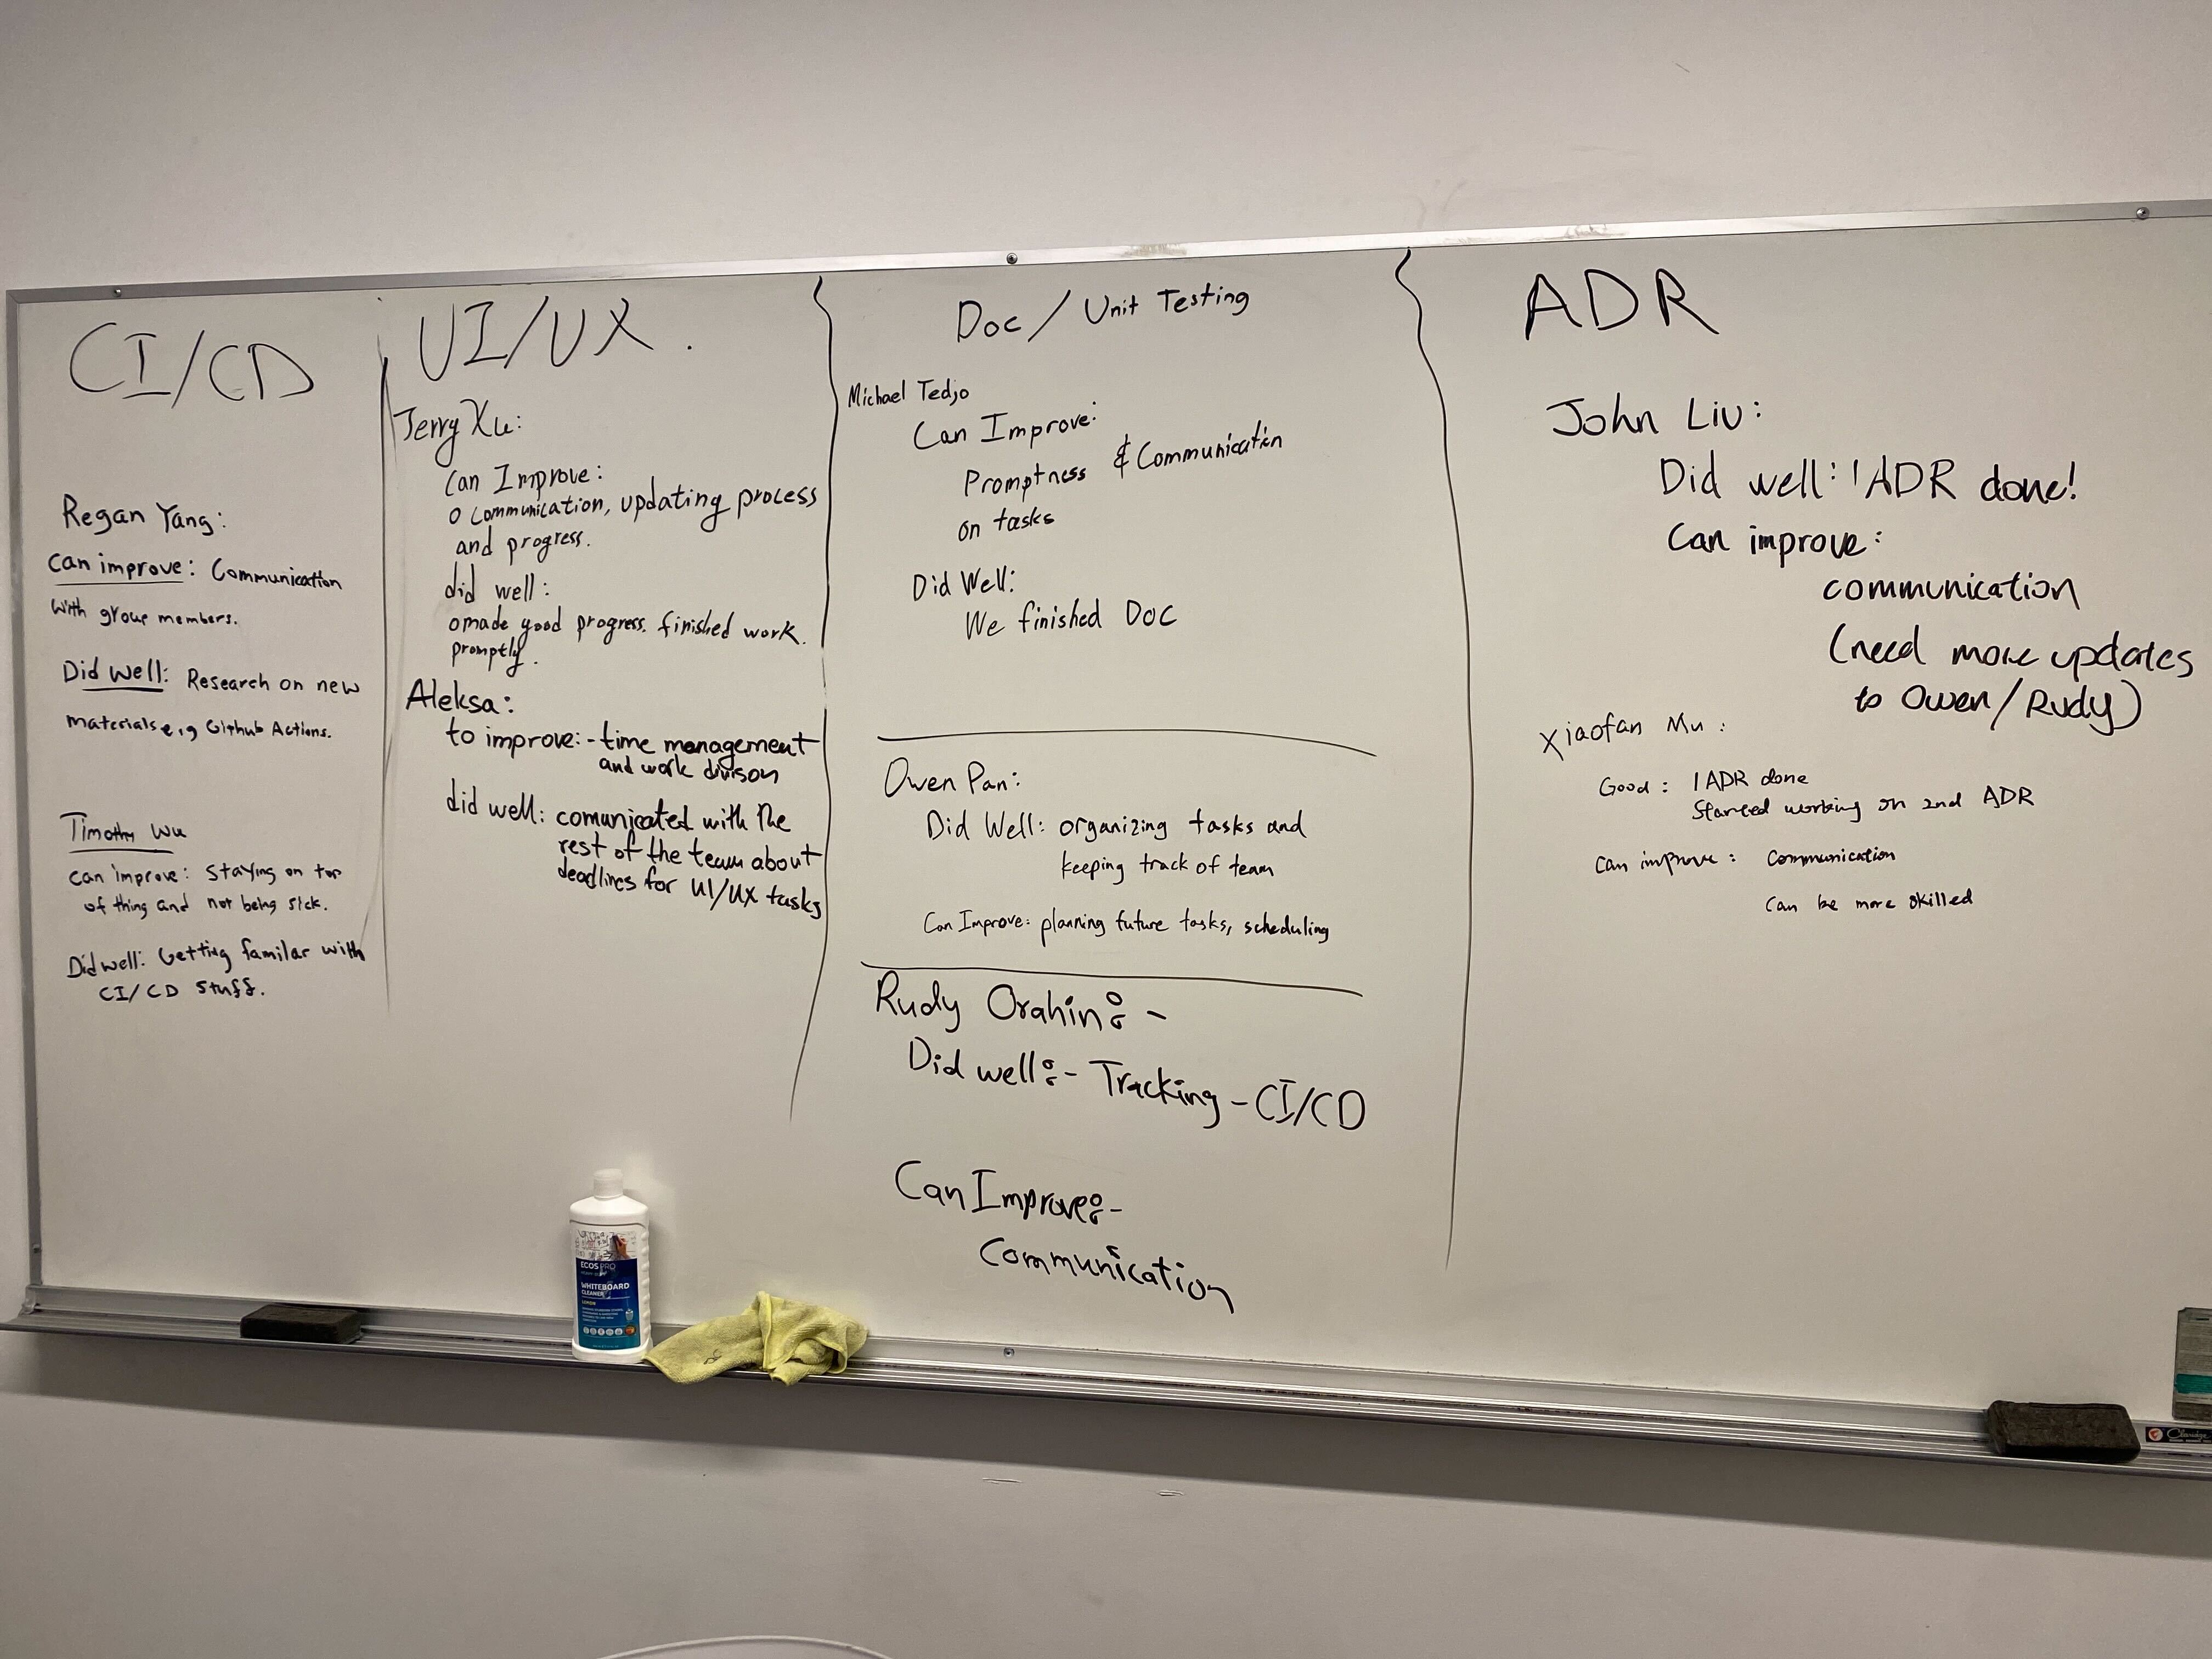 CI/CD
Regan Yang:
Can improve: Communication
with group members.
Did well: Research on new
materials e.g Github Actions.
Timothy Wu
can improve: Staying on top
of thing and not being sick.
Did well: Getting familar with
CI/CD stuff.
UI/UX.
Jerry Xu:
Can Improve:
o communication, updating process
and progress.
did well:
o made good progress. finished work.
promptly.
Aleksa:
to improve: - time management
and work divison
did well: comunicated with the
rest of the team about
deadlines for UI/UX tasks
Doc / Unit Testing
Michael Tedjo
Can Improve:
Promptness & Communication
on tasks
Did Well:
We finished Doc
Owen Pan:
Did Well: organizing tasks and
keeping track of team
Can Improve: planning future tasks, scheduling
Rudy Orahin:-
Did well:- Tracking - CI/CD
Can Improve:-
Communication
ADR
John Liu:
Did well: 1 ADR done!
Can improve:
communication
(need more updates
to Owen/Rudy)
Xiaofan Mu:
Good: 1 ADR done
Started working on 2nd ADR
Can improve: Communication
Can be more skilled
ECOS PRO
WHITEBOARD
CLEANER
LEMON
Claridge